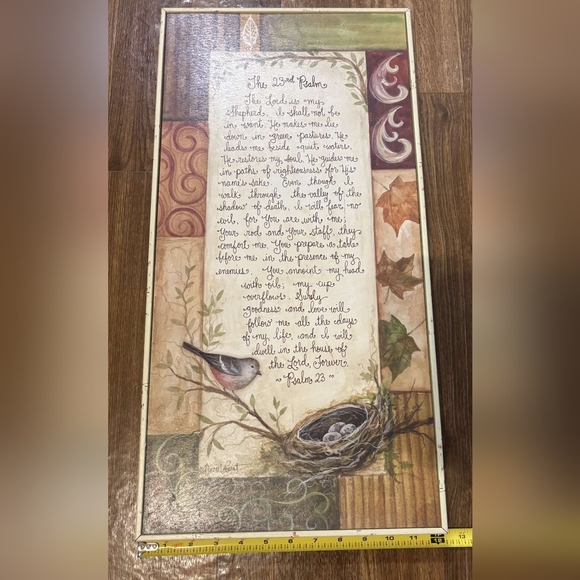 The 23rd Psalm
The Lord is my
Shepherd, I shall not be
in want. He makes me lie
down in green pastures. He
leads me beside quiet waters.
He restores my soul. He guides me
in paths of righteousness for His
names sake. Even though I
walk through the valley of the
shadow of death, I will fear no
evil, for You are with me;
Your rod and Your staff, they
comfort me. You prepare a table
before me in the presence of my
enemies. You annoint my head
with oil; my cup
overflows. Surely
goodness and love will
follow me all the days
of my life, and I will
dwell in the house of
the Lord, Forever.
~ Psalm 23 ~
1 2 3 4 5 6 7 8 9 10 11 13